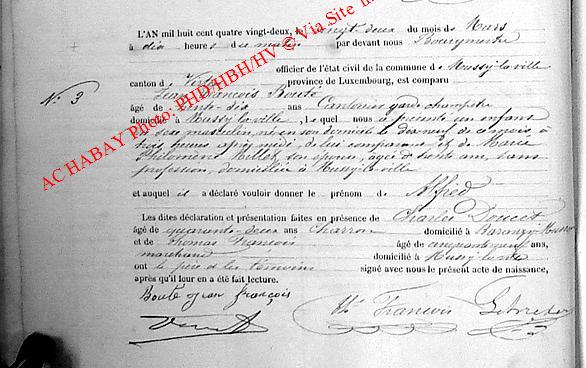 L'AN mil huit cent quatre vingt-deux, le vingt-deux du mois de Mars
à dix heures du matin par devant nous Bourgmestre
officier de l'état civil de la commune de Mussy-la-ville
canton de Virton province de Luxembourg, est comparu
N° 3
Jean François Bouté
âgé de trente-dix ans Cantonier garde champêtre
domicilié à Mussy-la-ville, lequel nous a présenté un enfant
du sexe masculin, né en son domicile le dix neuf de ce mois, à
trois heures après midi, de lui comparant et de Marie
Philomène son épouse, âgée de trente ans, sans
profession, domiciliée à Mussy-la-ville
et auquel il a déclaré vouloir donner le prénom de Alfred
Les dites déclaration et présentation faites en présence de Charles Doucet
âgé de quarante-deux ans Charron domicilié à Baranzy Mussy
et de Thomas François âgé de cinquante neuf ans,
marchand domicilié à Mussy-la-ville
ont le père et les témoins signé avec nous le présent acte de naissance,
après qu'il leur en a été fait lecture.
Bouté jean françois
François
AC HABAY Photo: PHD/HBH/HV © Via Site